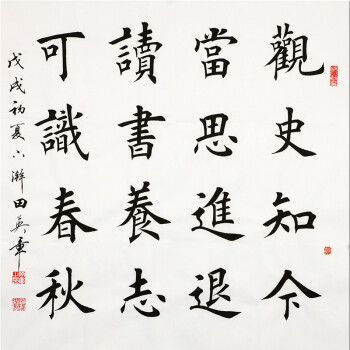 觀史知今
當思進退
讀書養志
可識春秋
戊戌初夏六澣田英章